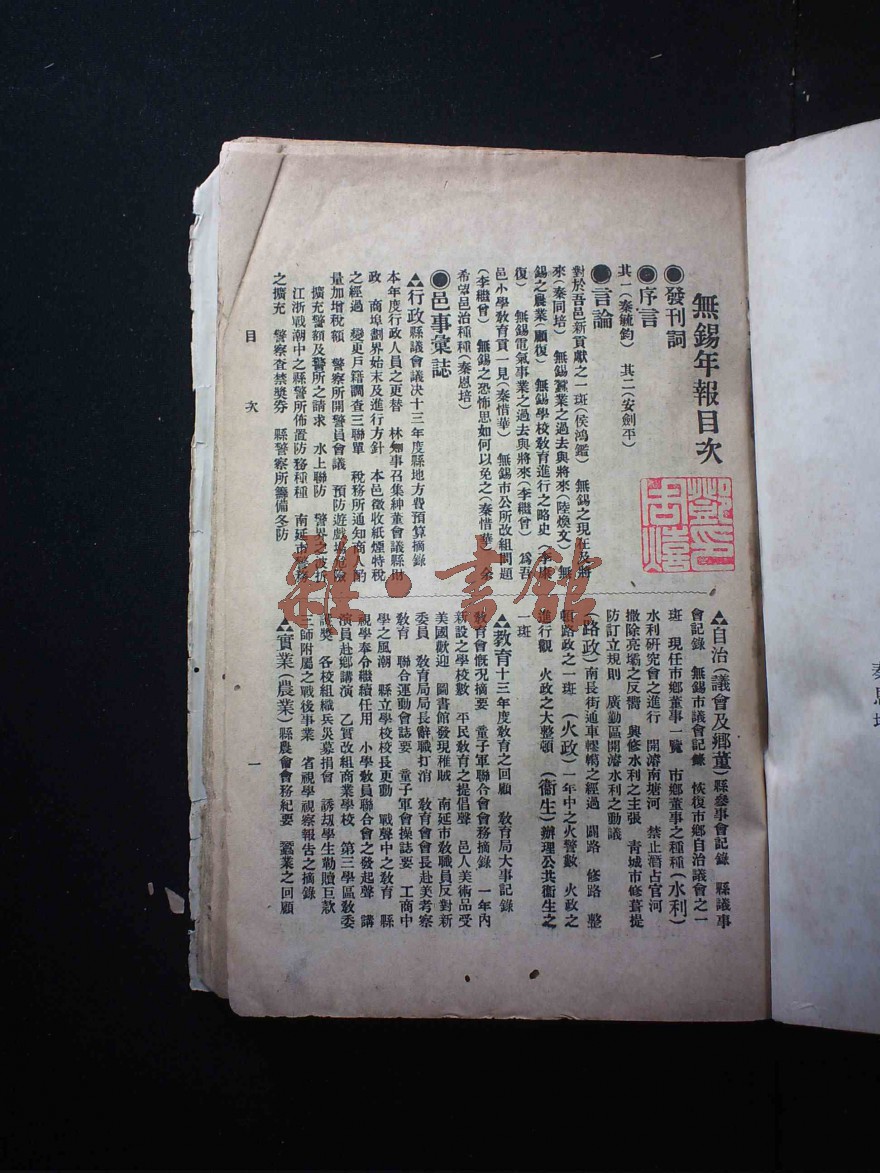 無錫年報目次
●發刊詞
●序言
其一(秦毓鈞) 其二(安劍平)
●言論
對於吾邑新貢獻之一斑(侯鴻鑑) 無錫之現在及將
來(秦同培) 無錫蠶業之過去與將來(陸煥文) 無
錫之農業(顧復) 無錫學校教育進行之略史(李康
復) 無錫電氣事業之過去與將來(李繼曾) 爲吾
邑小學教育貢一見(秦惜華) 無錫市公所改組問題
(李繼曾) 無錫之恐怖思如何以免之(秦惜華) 余
希望邑治種種(秦恩培)
●邑事彙誌
▲行政 縣議會議决十三年度縣地方費預算摘錄
本年度行政人員之更替 林知事召集紳董會議縣財
政 商埠劃界始末及進行方針 本邑徵收紙煙特稅
之經過 變更戶籍調查三聯單 稅務所通知商人酌
量加增稅額 警察所開警員會議 預防遊戲場危險
擴充警額及警所之請求 水上聯防 警界之波折
江浙戰潮中之縣警所佈置防務種種 南延市警務
之擴充 警察查禁奬券 縣警察所籌備冬防
▲自治(議會及鄉董)縣參事會記錄 縣議事
會記錄 無錫市議會記錄 恢復市鄉自治議會之一
班 現任市鄉董事一覽 市鄉董事之種種(水利)
水利研究會之進行 開濬南塘河 禁止潛占官河
撤除亮壩之反嚮 興修水利之主張 靑城市修葺提
防訂立規則 廣勤區開濬水利之動議
(路政)南長街通車轇轕之經過 闢路 修路 整
頓路政之一斑 (火政)一年中之火警數 火政之
進行觀 火政之大整頓 (衞生)辦理公共衞生之
一斑
▲教育 十三年度教育之回顧 教育局大事記錄
教育會慨況摘要 童子軍聯合會會務摘錄 一年內
新設之學校數 平民教育之提倡聲 邑人美術品受
美國歡迎 圖書館發現穢賊 南延市教職員反對新
委員 教育局局長辭職打消 教育會會長赴美考察
教育 聯合運動會誌要 童子軍會操誌要 工商中
學之風潮 縣立學校校長更動 戰聲中之教育 縣
視學奉令繼續任用 小學教員聯合會之發起聲 講
演員赴鄉講演 乙實改組商業學校 第三學區教委
記奬 各校組織兵災募捐會 誘刼學生勒贖巨款
三師附屬之戰後事業 省視學視察報告之摘錄
▲實業(農業)縣農會會務紀要 蠶業之回顧
目 次
一
雜·書館